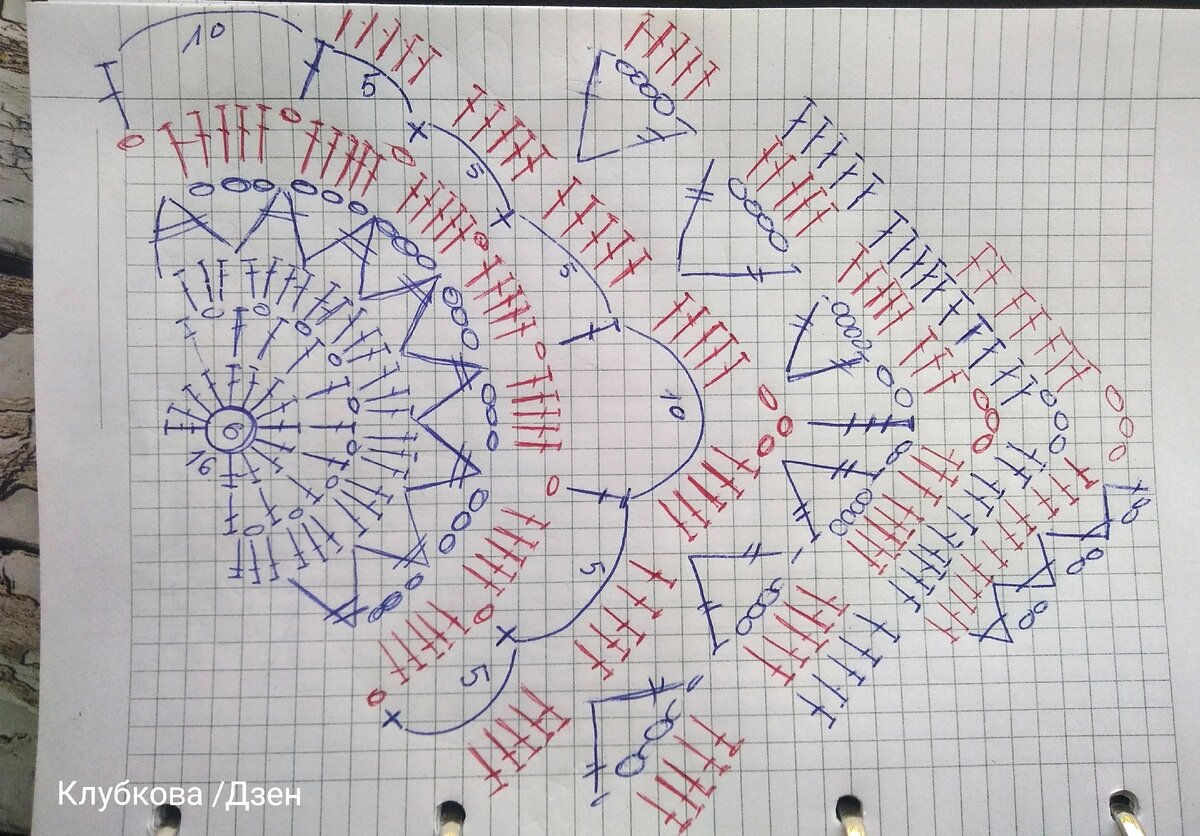 10
5
5
5
6
16
10
5
5
Клубкова /Дзен